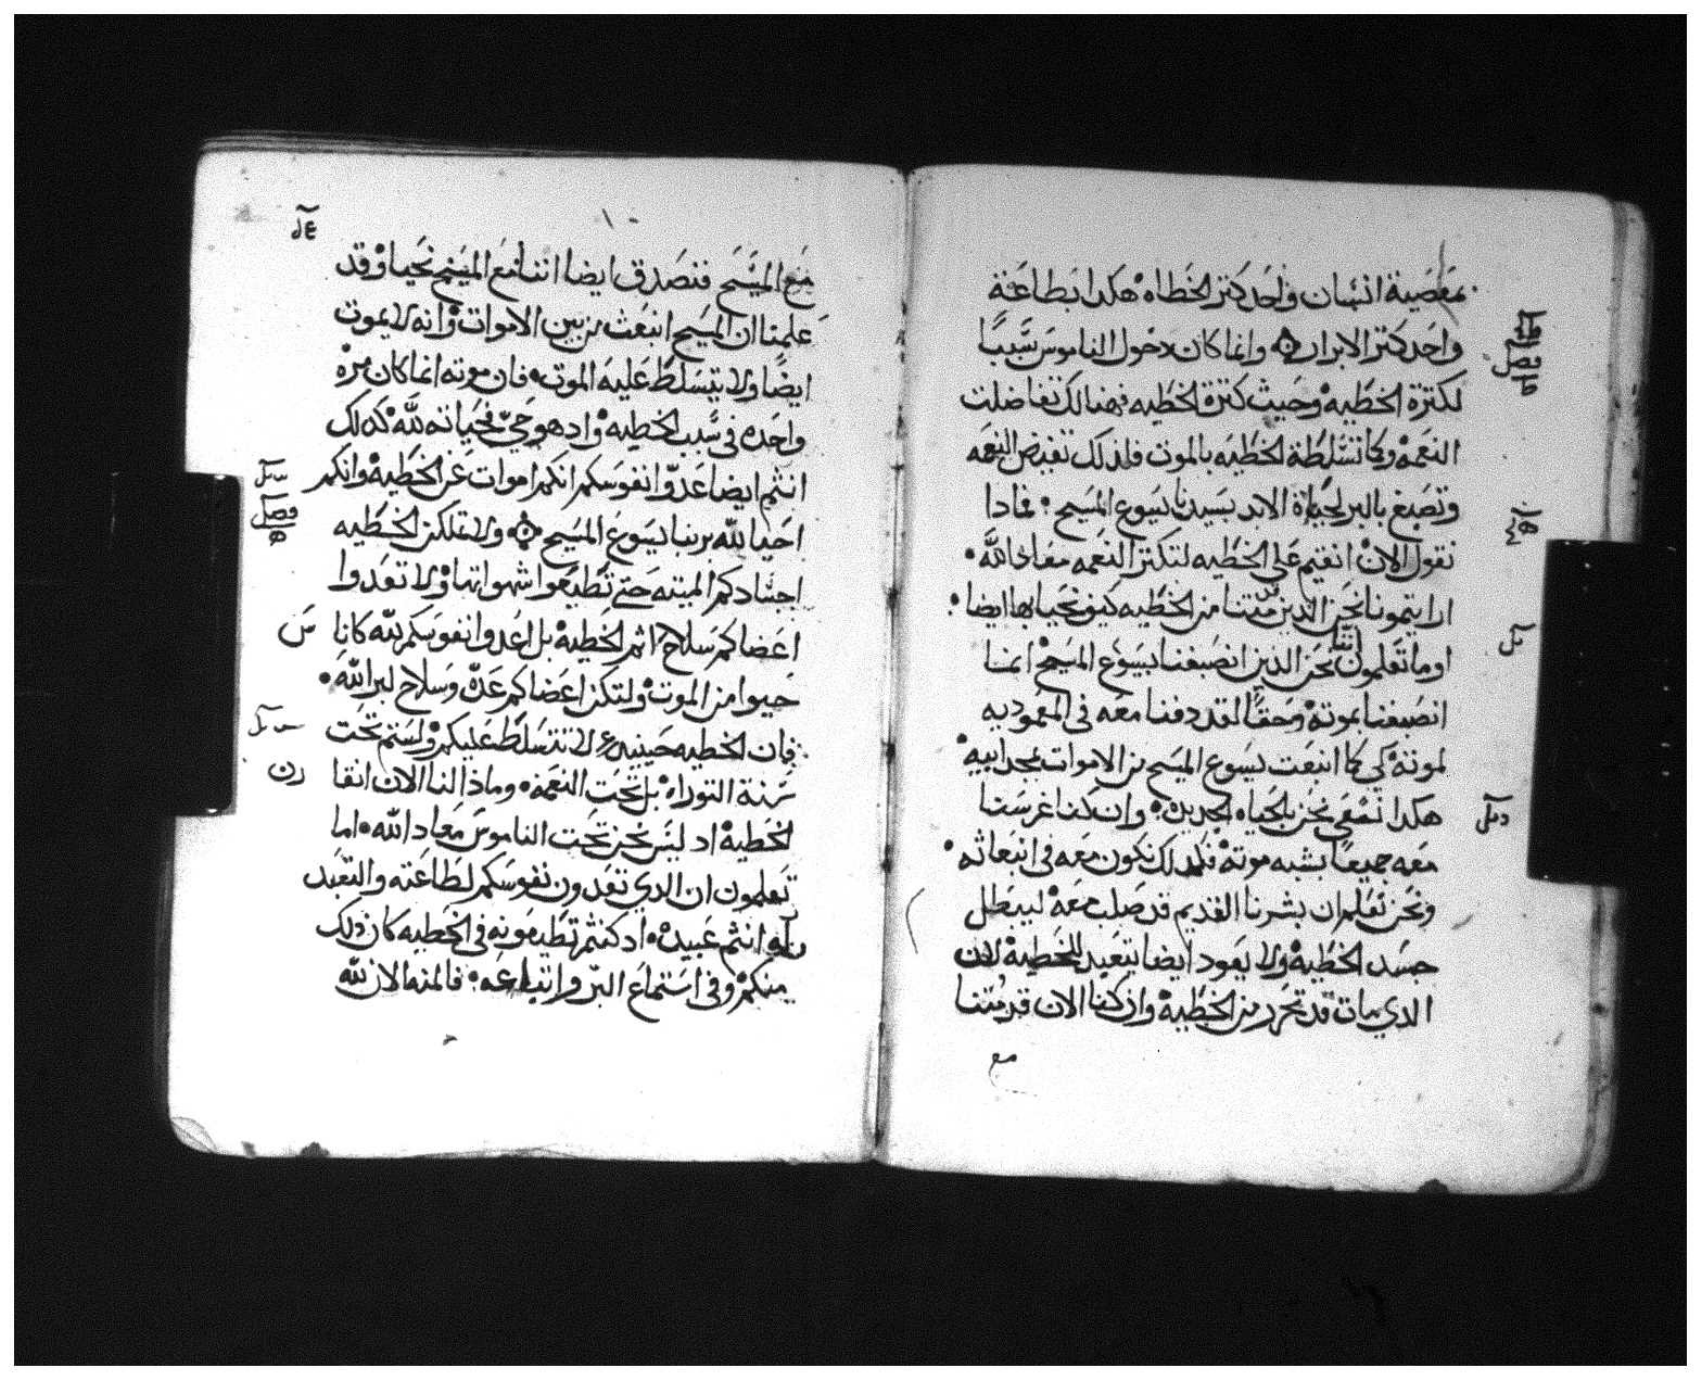 بمعصية انسان واحد كتر الخطاه هكدا بطاعة
واحد كتر الابرار وانما كان دخول الناموس سببًا
لكترة الخطيه وحيث كترة الخطيه فهنالك تفاضلت
النعمه وكما تسلطة الخطيه بالموت فلذلك تفيض النعمه
وتصبغ بالبر لحياة الابد بسيدنا يسوع المسيح فمادا
نقول الان انقيم على الخطيه لتكتر النعمه معاد الله
ارايتمونا نحن الدين متنا من الخطيه كيف نحيا بها ايضا
اوما تعلمون اننا نحن الدين انصبغنا بيسوع المسيح انما
انصبغنا بموته وحقًا لقد دفنا معه في المعموديه
لموته كي كما انبعت يسوع المسيح من الاموات بمجد ابيه
هكدا نسعى نحن بالحياه الجديده وان كنا اغرسنا
معه جميعا بشبه موته فكدلك نكون معه في انبعاثه
ونحن نعلم ان بشرنا القديم قد صلب معه ليبطل
جسد الخطيه ولا يعود ايضا يتعبد للخطيه لان
الدي مات قد تحرر من الخطيه وان كنا الان قد متنا
مع
مع المسيح فنصدق ايضا اننا مع المسيح نحيا وقد
علمنا ان المسيح انبعث من بين الاموات وانه لا يموت
ايضًا ولا يتسلط عليه الموت فان موته انما كان مره
واحده في سبب الخطيه واد هو حيّ فحياته لله كدلك
انتم ايضا عدّوا انفوسكم انكم اموات عن الخطيه وانكم
احيا لله بربنا يسوع المسيح ولا تملكن الخطيه
اجسادكم الميته حتى تطيعوا شهواتها ولا تعدوا
اعضاكم سلاح اثم الخطيه بل اعدوا انفوسكم لله كاناس
حيوا من الموت ولتكن اعضاكم عدّه وسلاح لبر الله
فان الخطيه حينيد لا تتسلط عليكم ولستم تحت
سنة التوراه بل تحت النعمه وماذا لنا الان انقا
الخطيه اد ليس نحن تحت الناموس معاد الله اما
تعلمون ان الدي تعدون نفوسكم لطاعته والتعبد
له انتم عبيده اد كنتم تطيعونه في الخطيه كان ذلك
منكم وفي استماع البرّ واتباعه فالمنه الان لله
فصل
فصل